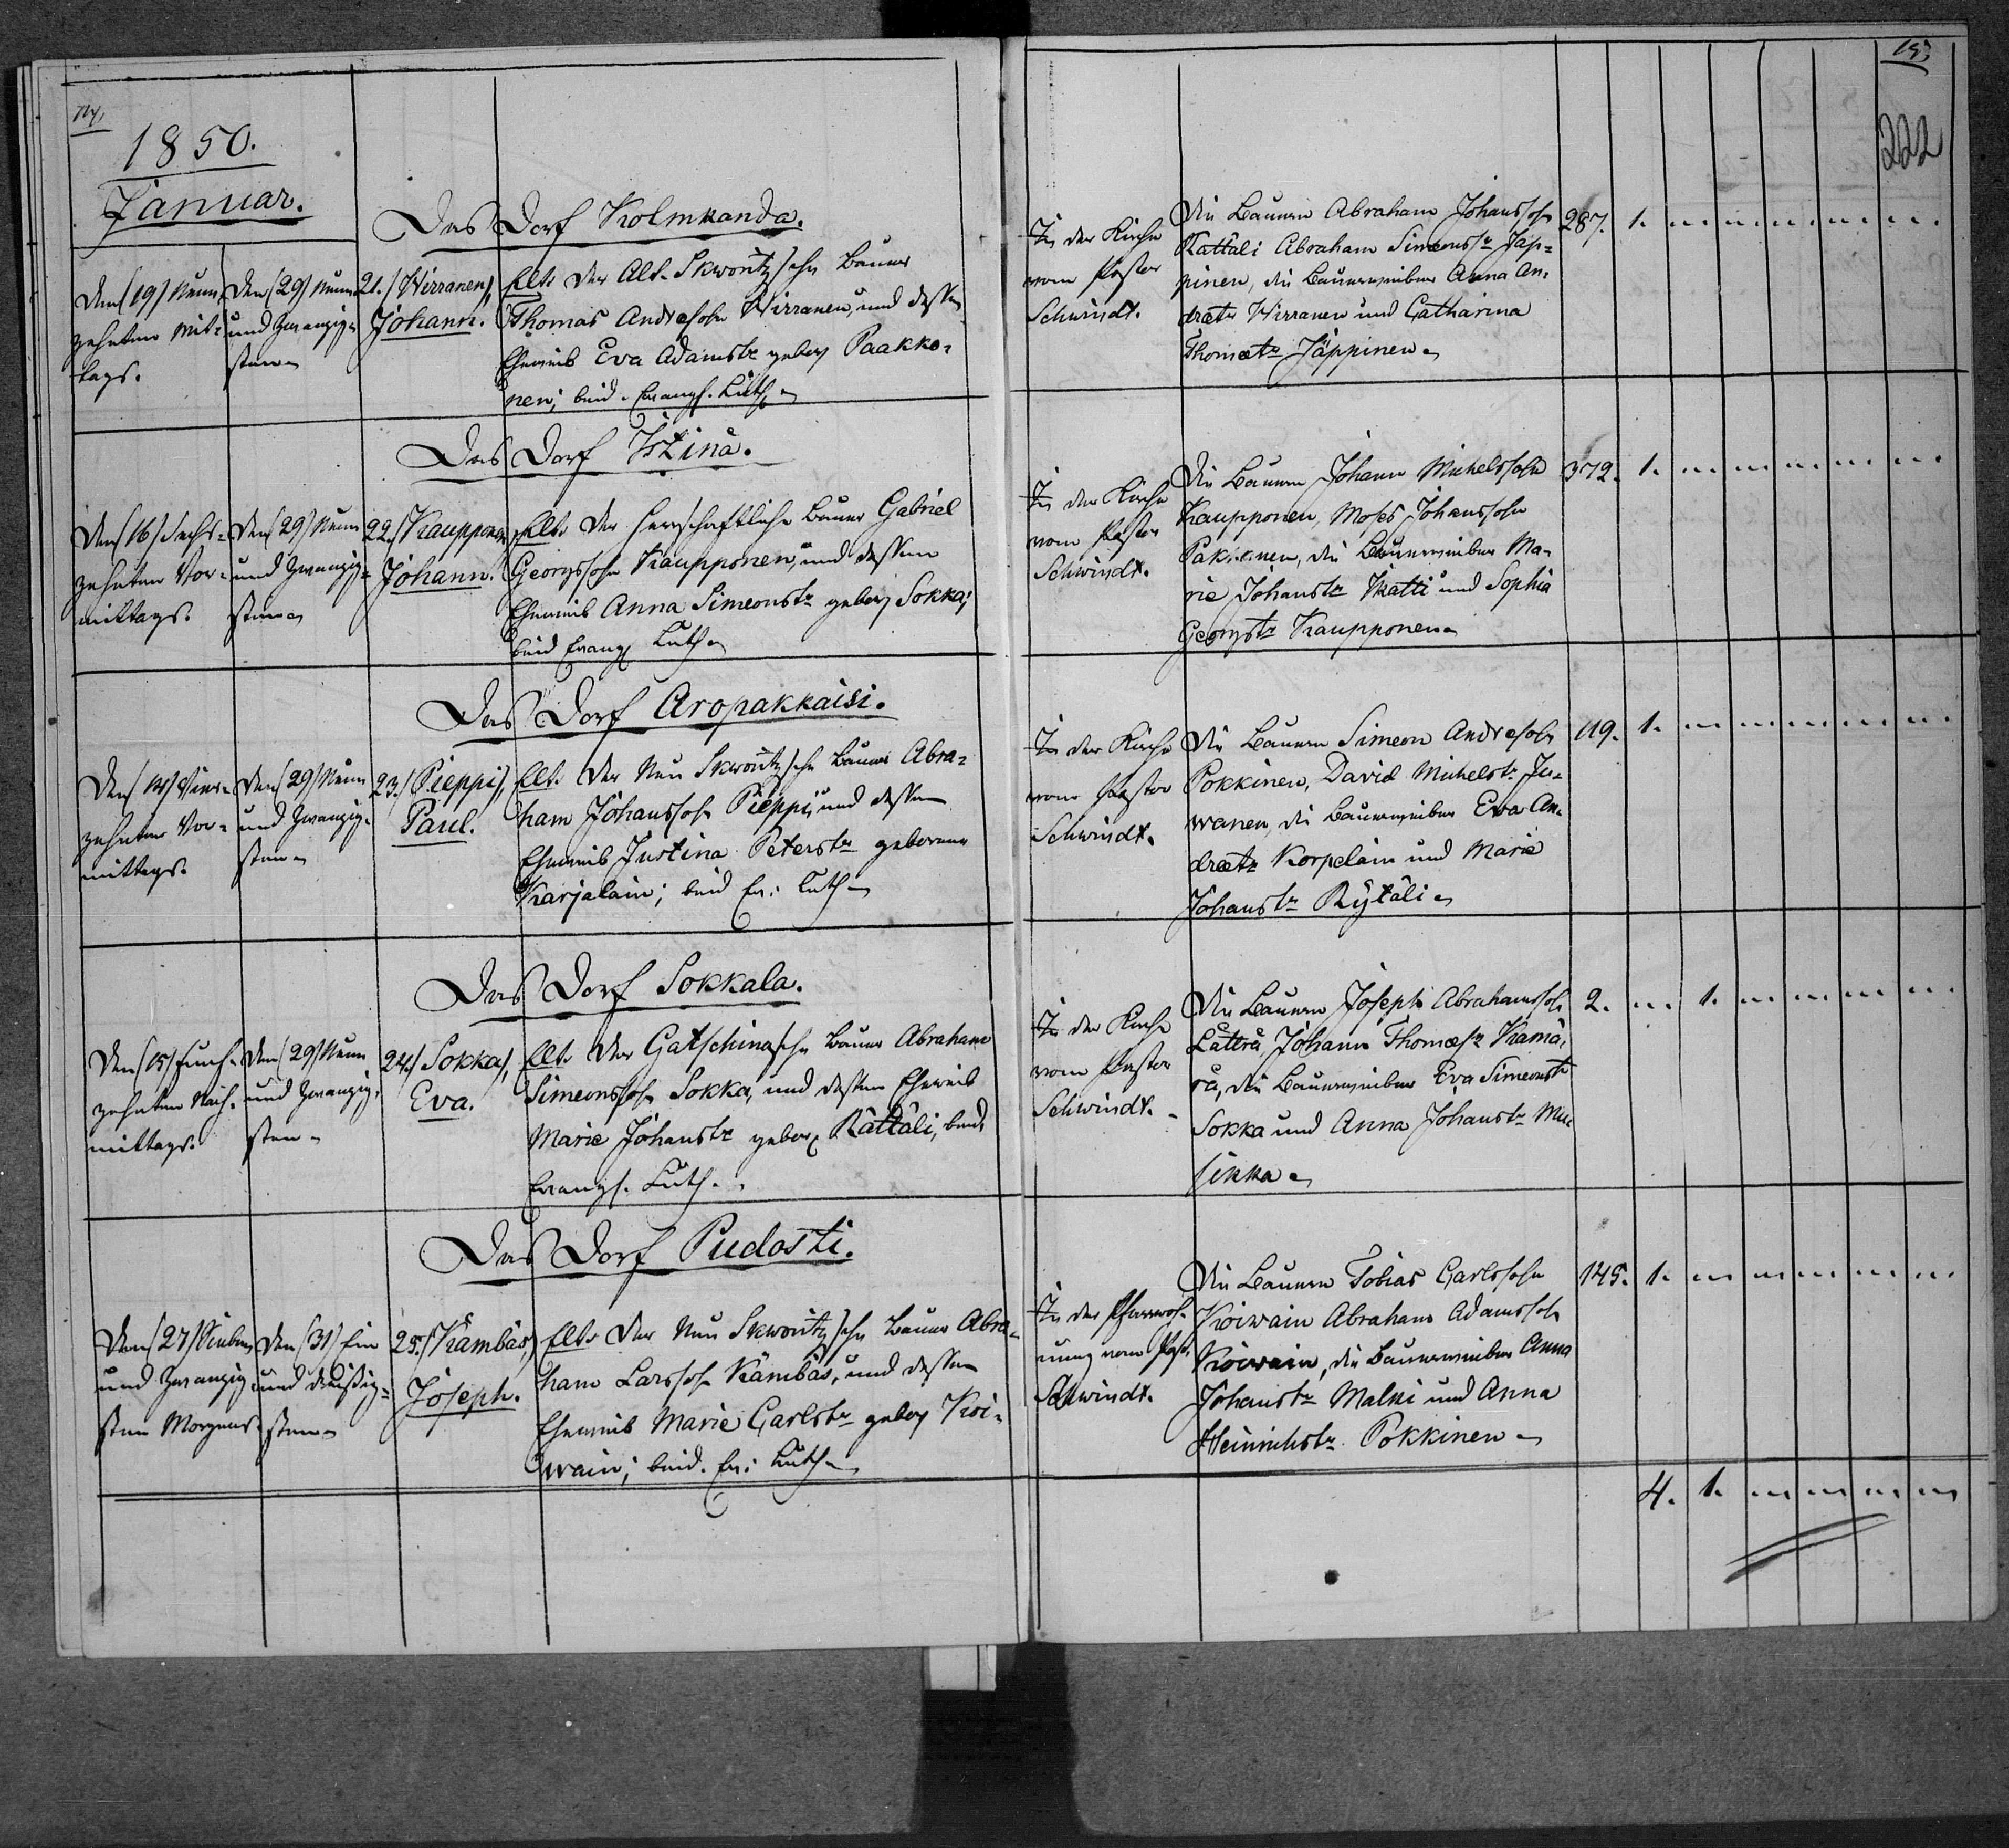 1850.
Januar.
Das Dorf Kolmkanda.
Den (19) Neun-
zehnten Mit-
tags.
Den (29) Neun
und Zwanzig-
sten
21. (Wirranen),
Johann.
Elt. der Alt-Skworitzsche Bauer
Thomas Andresohn Wirranen, und dessen
Eheweib Eva Adamstr. gebor. Paakko-
nen; beid. Evangl. Luth.
In der Kirche
vom Pastor
Schwindt.
Die Bauern Abraham Johanssohn
Rättäli Abraham Simeonss. Jäp-
pinen, die Bauernweiber Anna An-
dreætr. Wirranen und Catharina
Thomætr. Jäppinen
287. 1.
Das Dorf
Den (16) Sechs-
zehnten Vor-
mittags.
Den (29) Neun
und Zwanzig-
sten
22. (Kaupponen),
Johann.
Elt. der herrschaftliche Bauer Gabriel
Georgssohn Kaupponen, und dessen
Eheweib Anna Simeonstr. gebor. Sokka;
beid Evang. Luth.
In der Kirche
vom Pastor
Schwindt.
Die Bauern Johann Michelssohn
Kaupponen, Moses Johanssohn
die Bauernweiber Ma-
rie Johanstr. und Sophia
Georgstr. Kaupponen
372. 1.
Das Dorf Aropakkaisi.
Den (14) Vier-
zehnten Vor-
mittags.
Den (29) Neun
und Zwanzig-
sten
23. (Pieppi),
Paul.
Elt. der Neu Skworitzsche Bauer Abra-
ham Johanssohn Pieppi, und dessen
Eheweib Justina Peterstr. geborene
Karjalain; beid Ev: Luth
In der Kirche
vom Pastor
Schwindt.
Die Bauern Simeon Andresohn
Pokkinen, David Michelss. Ju-
wanen, die Bauernweiber Eva An-
dreætr. Korpelain und Marie
Johanstr. Rytäli
119. 1.
Das Dorf Sokkala.
Den (15) Funf-
zehnten Nach-
mittags.
Den (29) Neun
und Zwanzig-
sten
24. (Sokka),
Eva.
Elt. der Gatschinasche Bauer Abraham
Simeonssohn Sokka, und dessen Eheweib
Marie Johanstr. gebor. Rättäli, beid.
Evangl. Luth.
In der Kirche
vom Pastor
Schwindt.
Die Bauern Joseph Abrahamssohn
Lätträ, Johann Thomæss. Kämä-
rä, die Bauernweiber Eva Simeonstr.
Sokka und Anna Johanstr. Mu-
sikka
2. 1.
Das Dorf Pudosti.
Den (27) Sieben
und Zwanzig-
sten Morgens.
Den (31) Ein
und dreißig-
sten
25. (Kämbäs),
Joseph.
Elt. der Neu Skworitzsche Bauer Abra-
ham Larssohn Kämbäs, und dessen
Eheweib Marie Carlstr. gebor. Koi-
wain; beid. Ev: Luth
In der Pfarrwoh-
nung vom Past.
Schwindt.
Die Bauern Tobias Carlssohn
Koiwain Abraham Adamssohn
Koiwain, die Bauernweiber Anna
Johanstr. Malki und Anna
Heinrichstr. Pokkinen
145. 1.
4. 1.
222